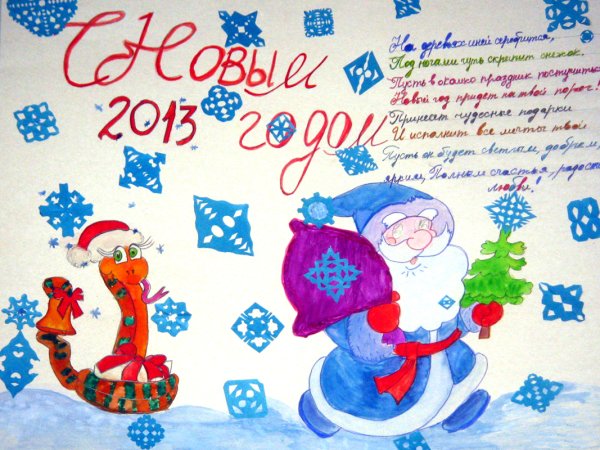 С Новым
2013 годом
На деревьях иней серебрится,
Под ногами чуть скрипит снежок.
Пусть в окошко праздник постучиться
Новый год придет на твой порог!
Принесет чудесные подарки
И исполнит все мечты твои
Пусть он будет светлым, добрым,
ярким, Полным счастья-радости
любви!